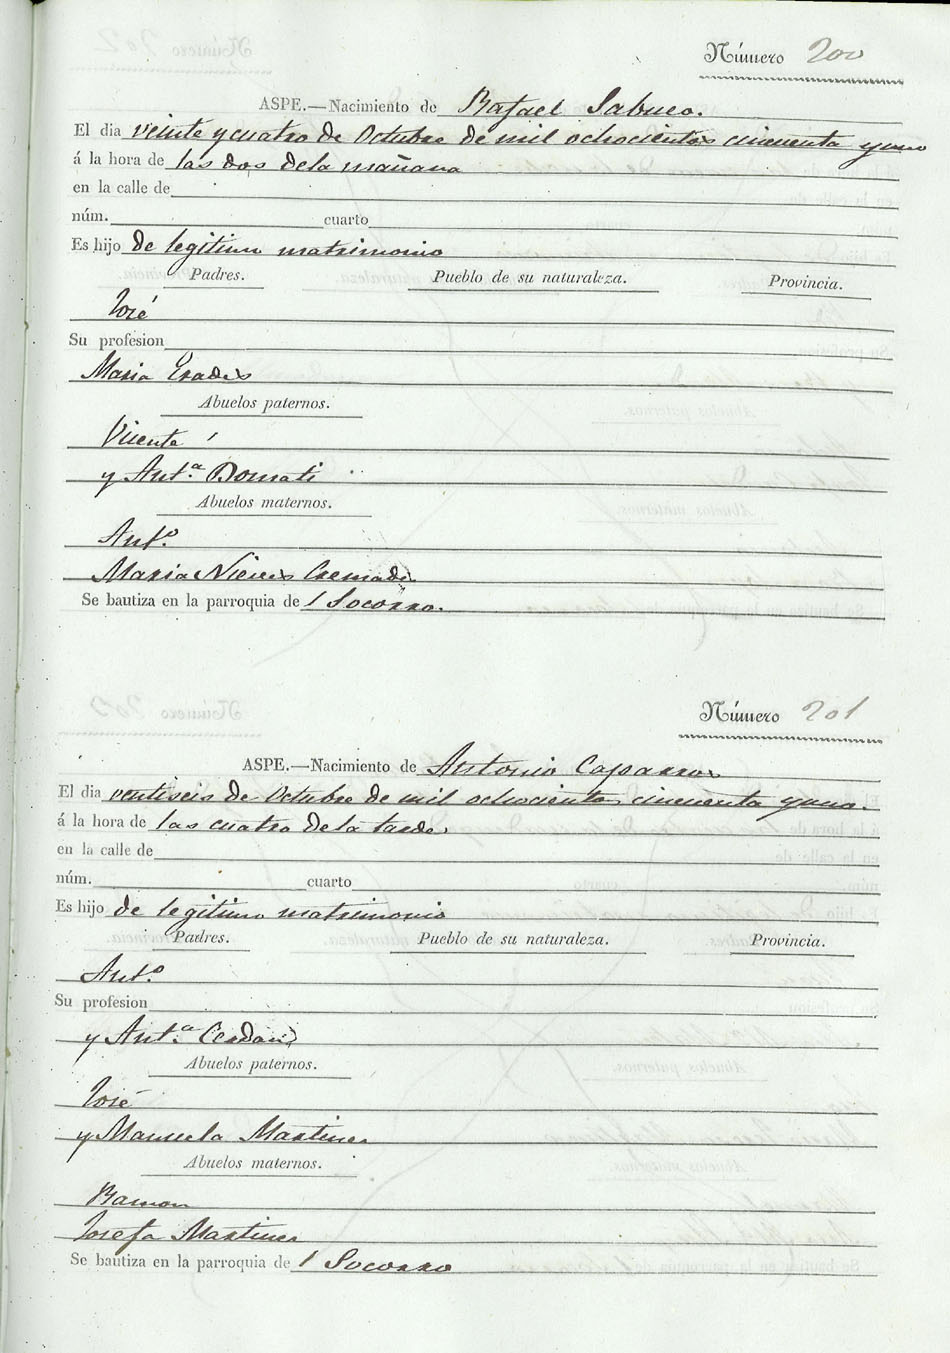 Número 200
ASPE.—Nacimiento de Rafael Sabuco.
El dia veinte y cuatro de Octubre de mil ochocientos cincuenta y uno
á la hora de las dos de la mañana
en la calle de
núm. cuarto
Es hijo de legitimo matrimonio
Padres. Pueblo de su naturaleza. Provincia.
José
Su profesion
Maria Prades
Abuelos paternos.
Vicente
y Ant.ª Bonati
Abuelos maternos.
Ant.º
Maria Nieves Cremades
Se bautiza en la parroquia de l Socorro.
Número 201
ASPE.—Nacimiento de Antonio Caparros
El dia ventiseis de Octubre de mil ochocientos cincuenta y uno.
á la hora de las cuatro de la tarde
en la calle de
núm. cuarto
Es hijo de legitimo matrimonio
Padres. Pueblo de su naturaleza. Provincia.
Ant.º
Su profesion
y Ant.ª Cerdan
Abuelos paternos.
José
y Manuela Martinez
Abuelos maternos.
Ramon
Josefa Martinez
Se bautiza en la parroquia de l Socorro